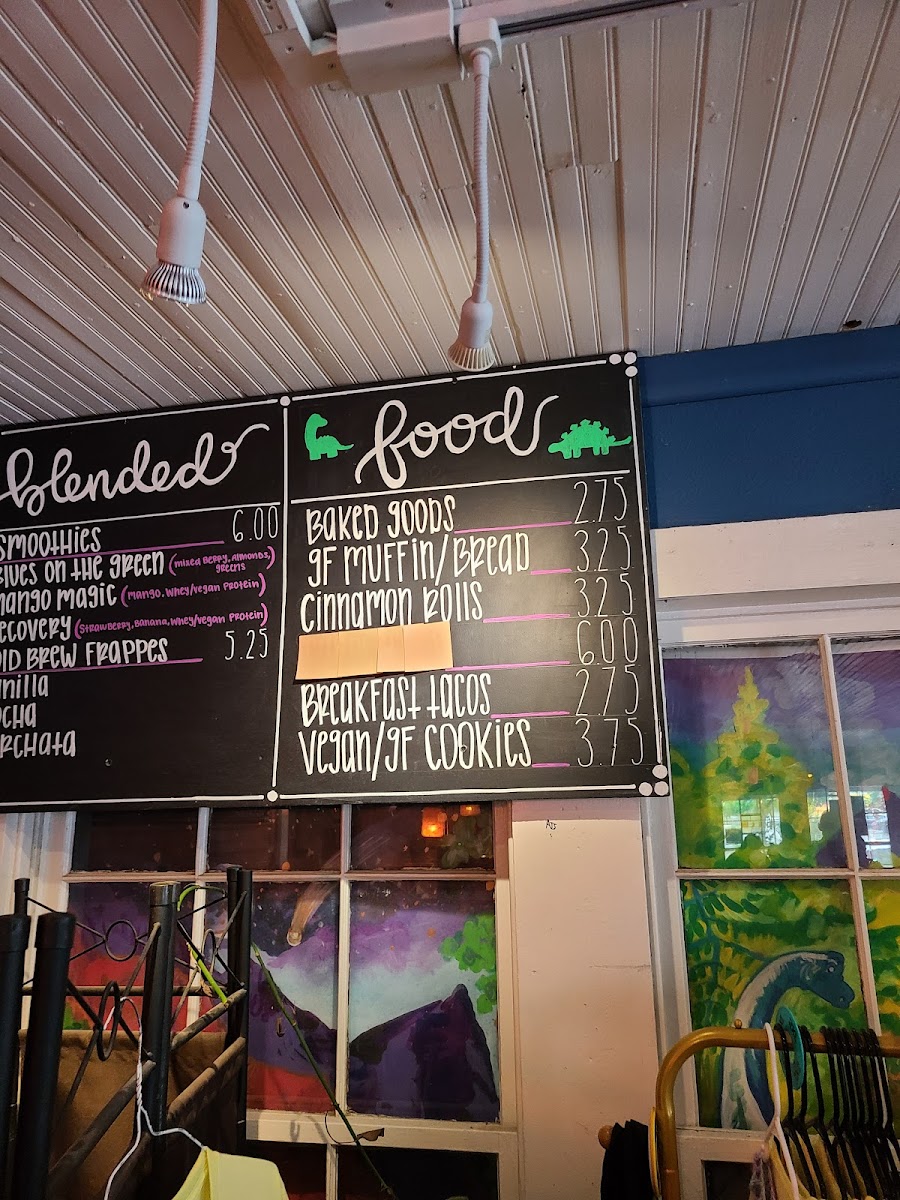 blended
SMOOTHIES 6.00
BLUES ON THE GREEN (MIXED BERRY, ALMONDS, GREENS)
MANGO MAGIC (MANGO, WHEY/VEGAN PROTEIN)
RECOVERY (STRAWBERRY, BANANA, WHEY/VEGAN PROTEIN)
OLD BREW FRAPPES 5.25
anilla
OCHA
RCHATA
food
BAKED GOODS 2.75
GF MUFFIN/BREAD 3.25
CINNAMON ROLLS 3.25
6.00
BREAKFAST TACOS 2.75
VEGAN/GF COOKIES 3.75